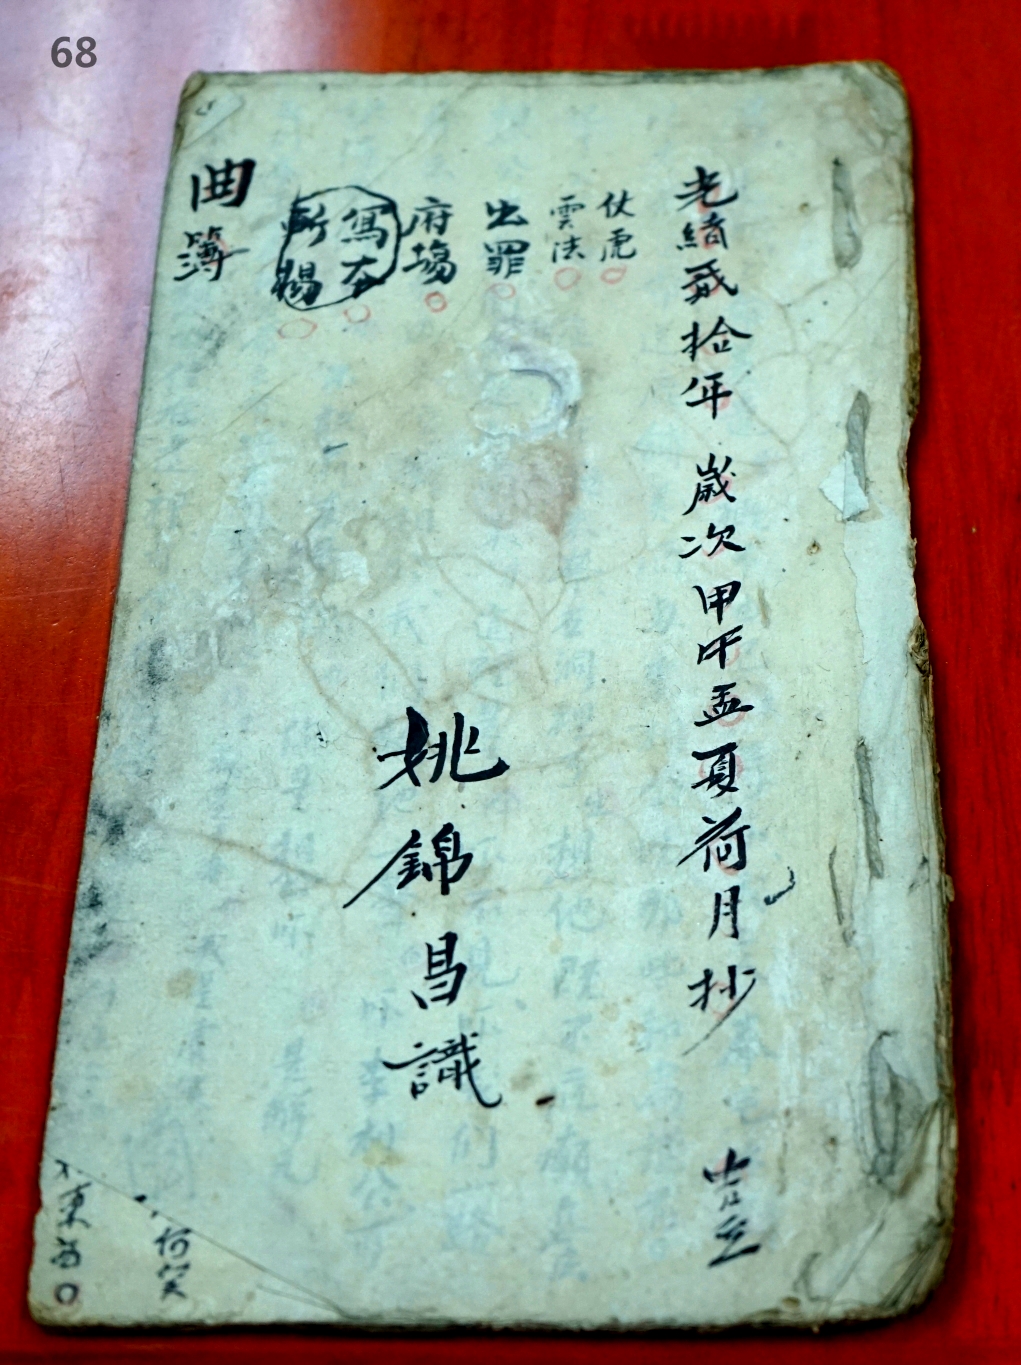 68
光緒貳拾年 歲次甲午孟夏荷月抄 吉立
伏虎
雲法
出罪
府場
寫本
斬楊
姚錦昌識
曲簿
何笑